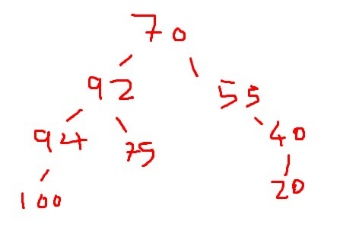 70
92 55
94 75 40
100 20